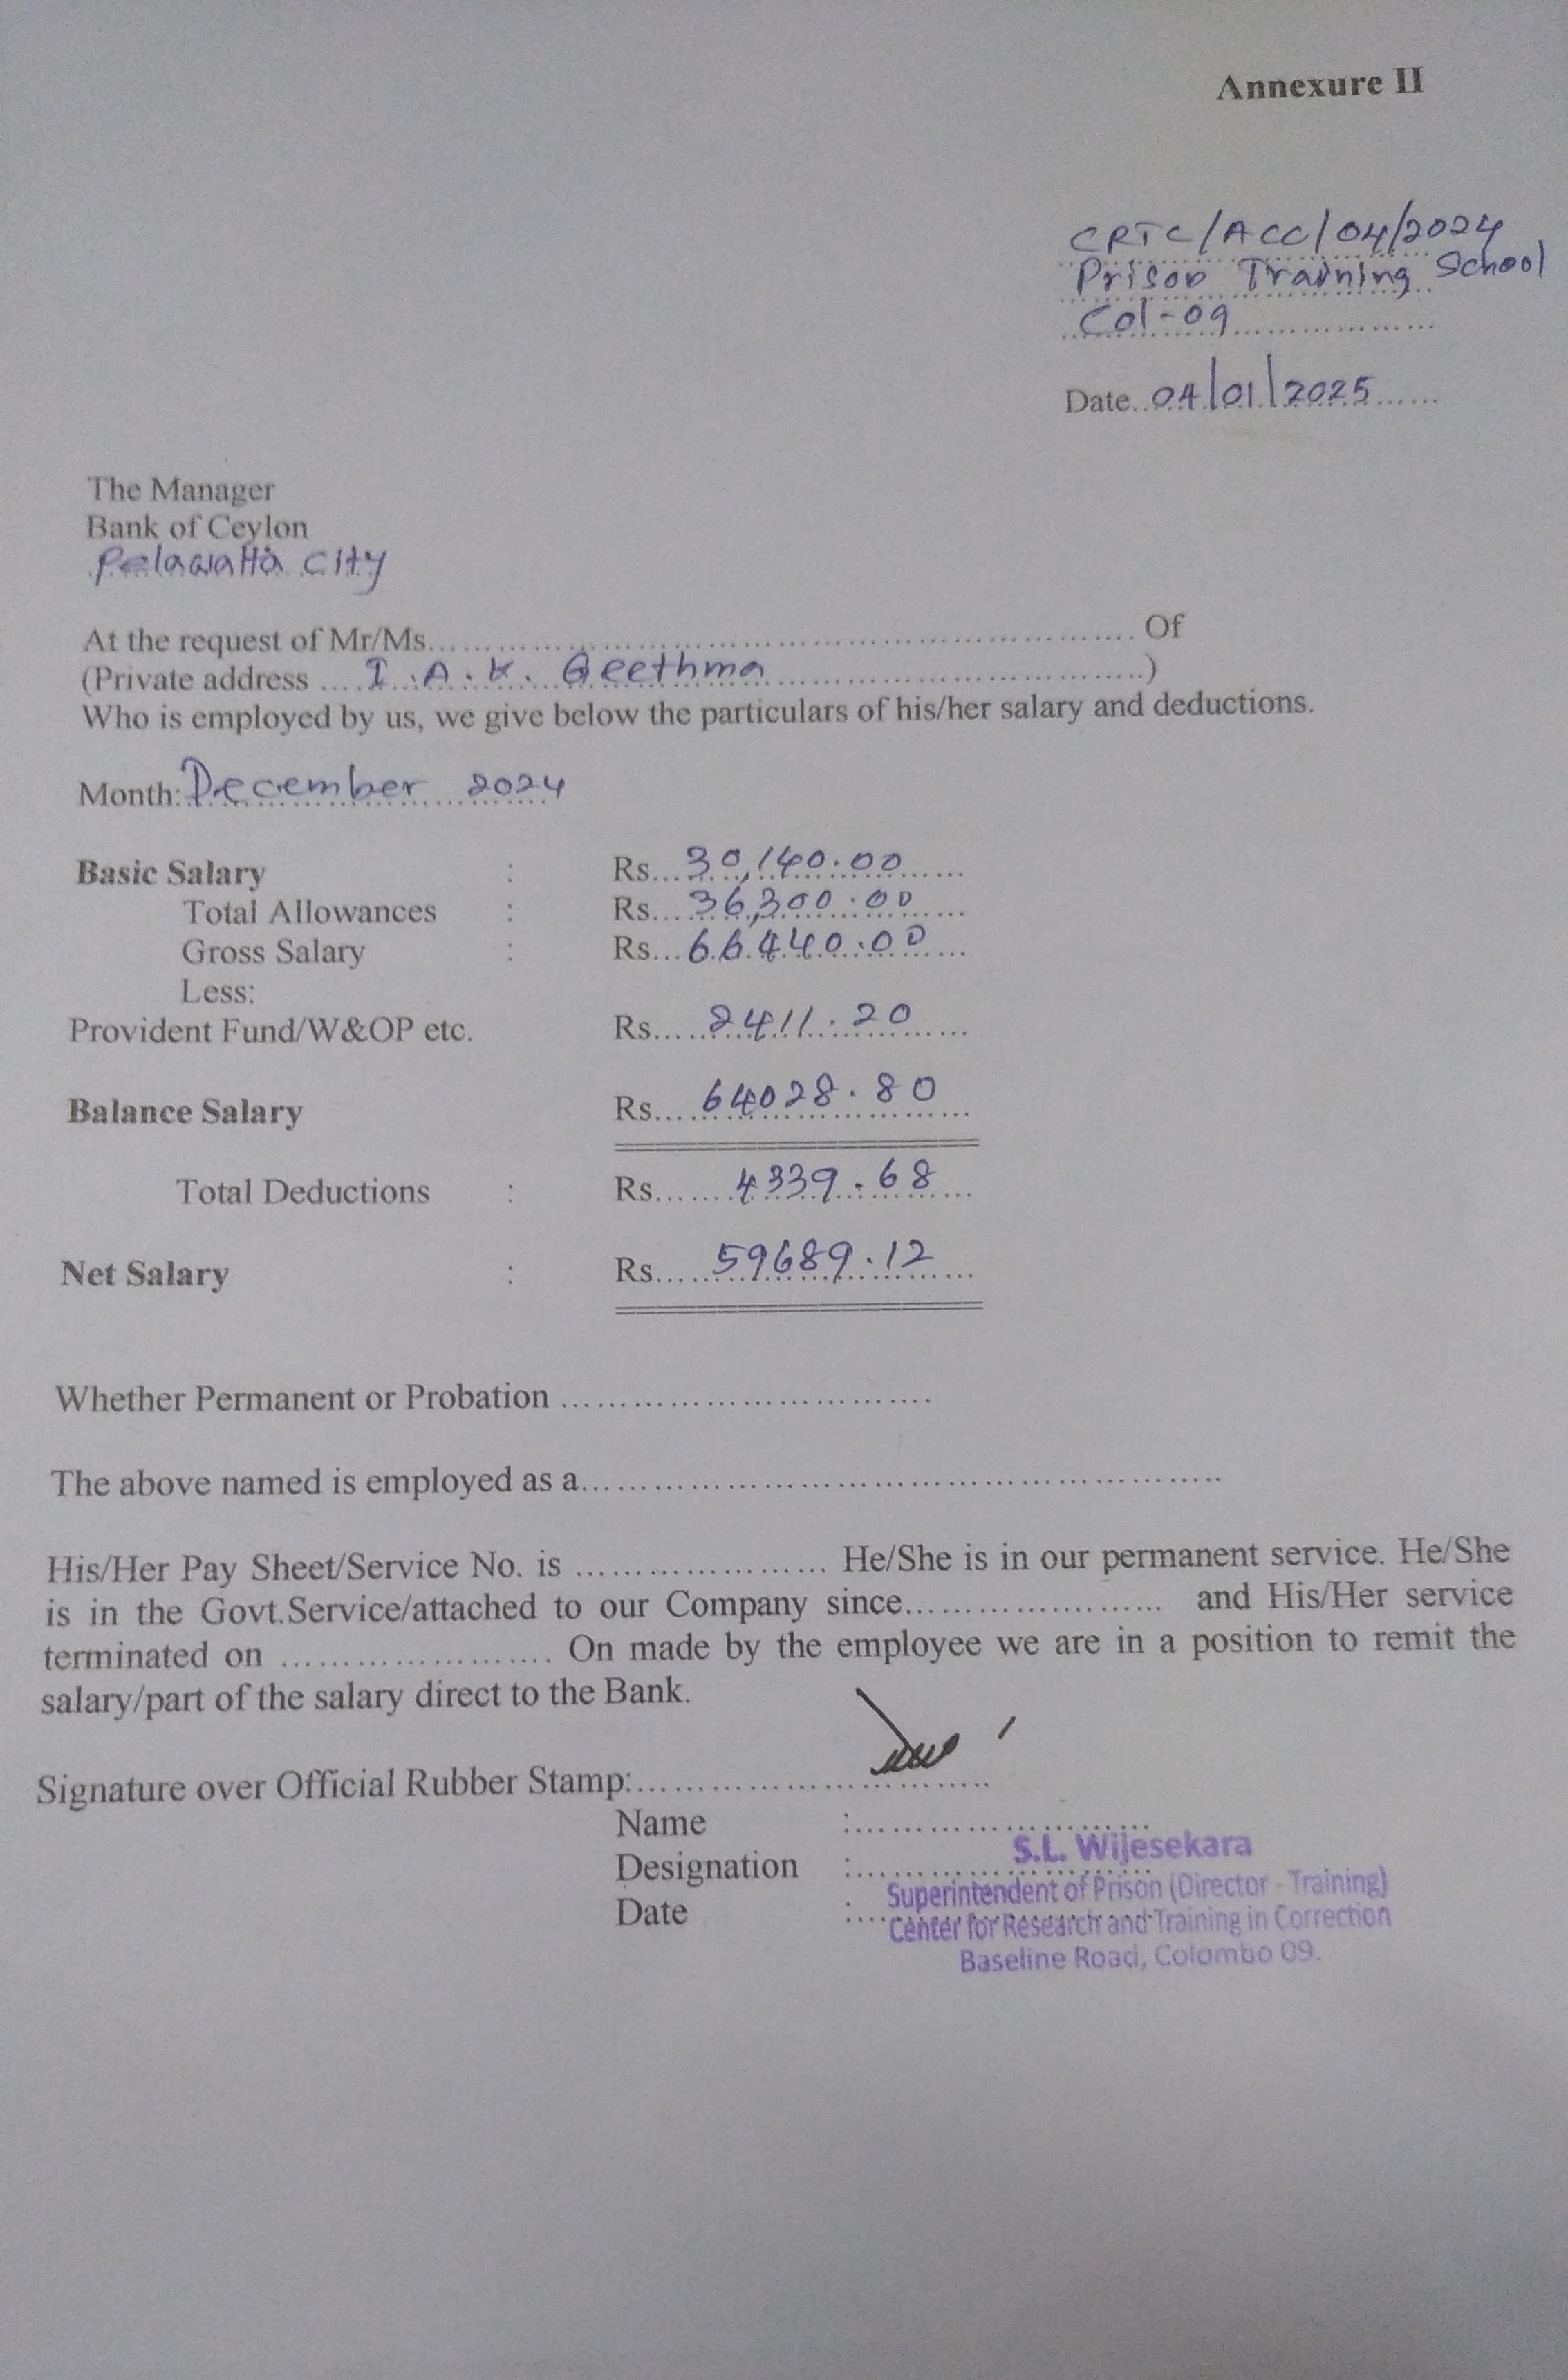 Annexure II
CRTC/ACC/04/2024
Prison Training School
Col-09
Date..04/01/2025......
The Manager
Bank of Ceylon
Pelawatta City
At the request of Mr/Ms........................................ Of
(Private address .... I.A.K. Geethma ........................)
Who is employed by us, we give below the particulars of his/her salary and deductions.
Month: December 2024
Basic Salary : Rs...30,140.00......
Total Allowances : Rs...36,300.00......
Gross Salary : Rs...66440.00......
Less:
Provident Fund/W&OP etc. Rs.....2411.20......
Balance Salary Rs....64028.80......
Total Deductions : Rs.......4339.68......
Net Salary : Rs......59689.12......
Whether Permanent or Probation ................................
The above named is employed as a........................................
His/Her Pay Sheet/Service No. is ........................ He/She is in our permanent service. He/She
is in the Govt.Service/attached to our Company since........................ and His/Her service
terminated on ........................ On made by the employee we are in a position to remit the
salary/part of the salary direct to the Bank.
Signature over Official Rubber Stamp:................................
Name :................................
S.L. Wijesekara
Designation :................................
Superintendent of Prison (Director - Training)
Date :....
Center for Research and Training in Correction
Baseline Road, Colombo 09.